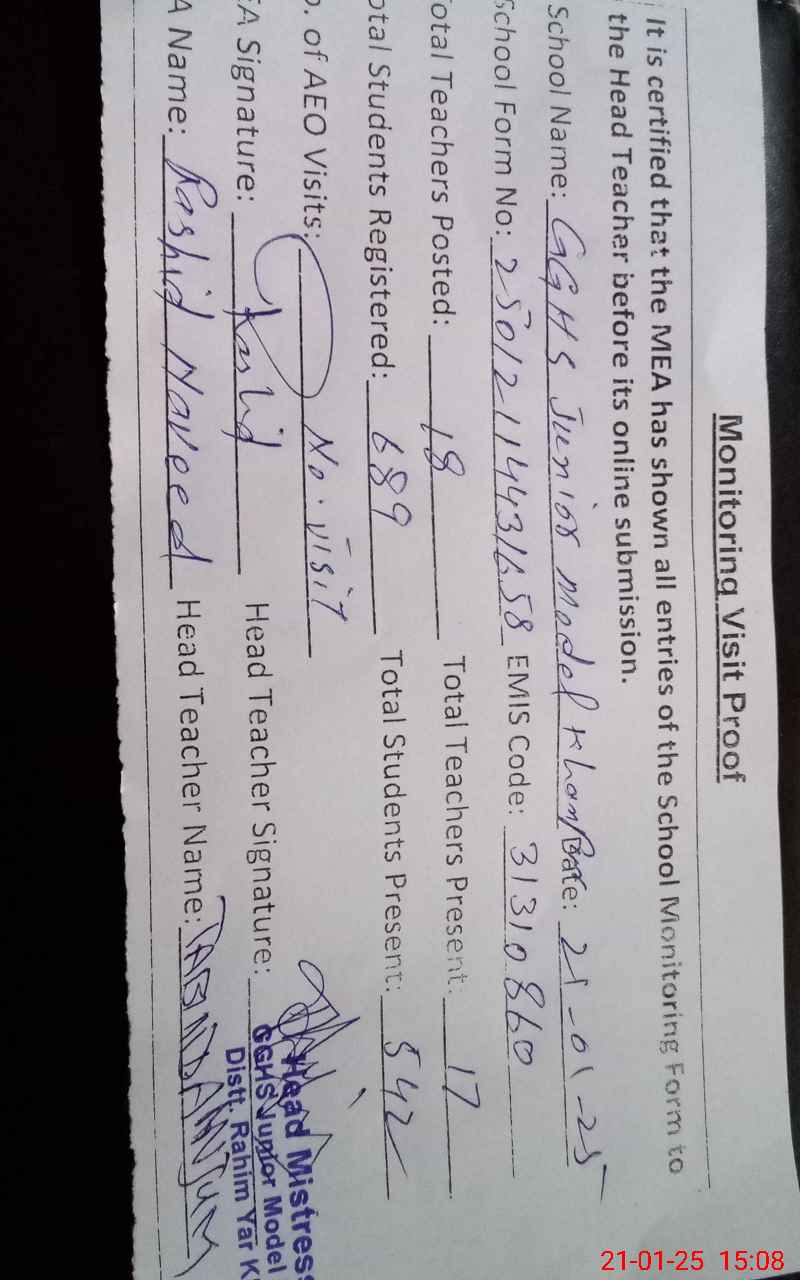 Monitoring Visit Proof
It is certified that the MEA has shown all entries of the School Monitoring Form to
the Head Teacher before its online submission.
School Name: GGHS Junior model Khan Date: 21-01-25
School Form No: 25012114431658 EMIS Code: 31310860
otal Teachers Posted: 18 Total Teachers Present: 17
otal Students Registered: 689 Total Students Present: 542
o. of AEO Visits: No. visit
EA Signature: Rashid Head Teacher Signature:
A Name: Rashid Naveed Head Teacher Name:
Head Mistress
GGHS Junior Model
Distt. Rahim Yar K
21-01-25 15:08